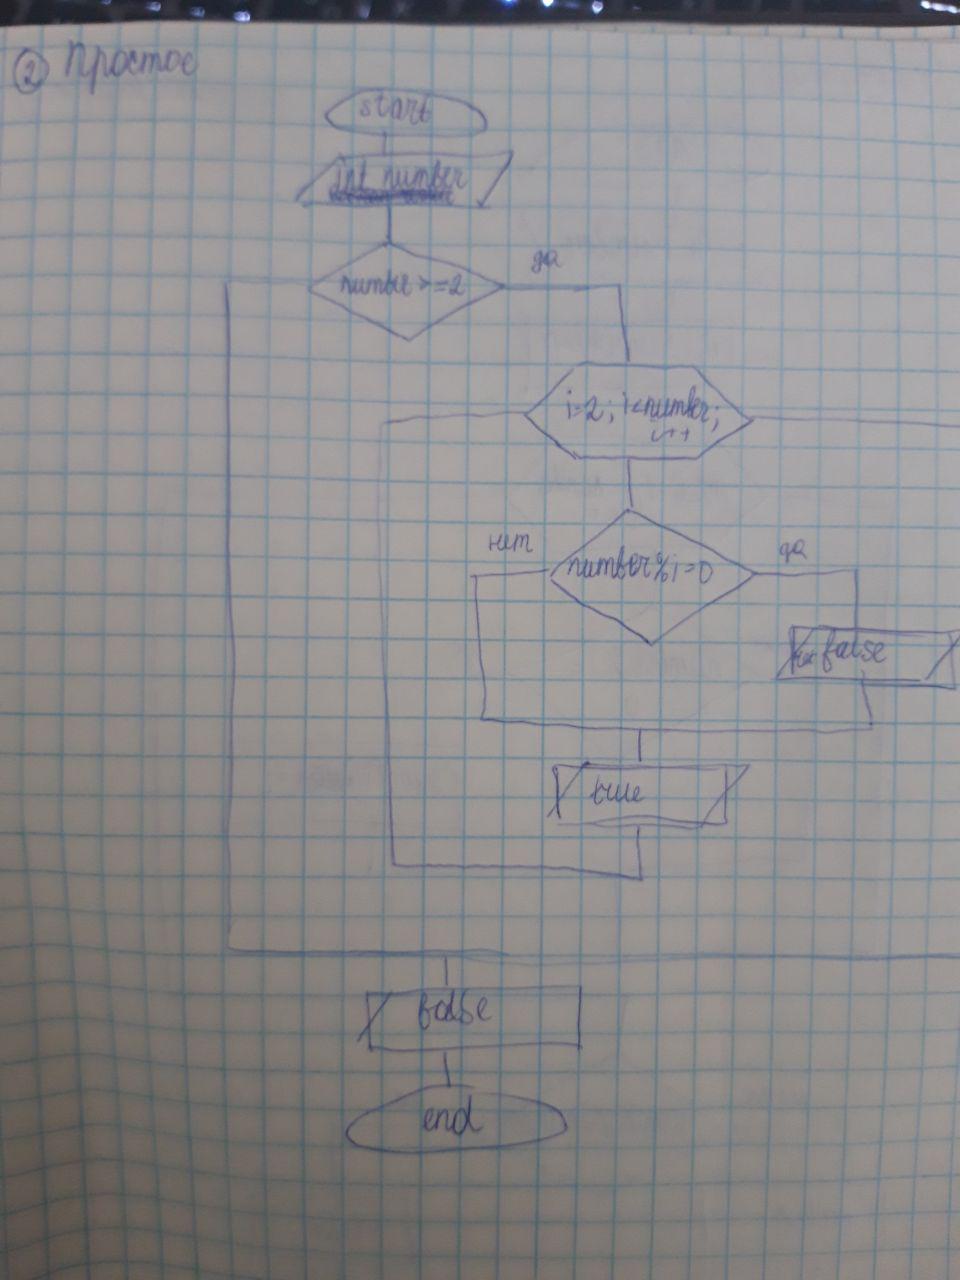 ② Простое
start
int number
number >= 2
да
i=2; i<number;
i++
number%i=0
нет
да
false
true
false
end